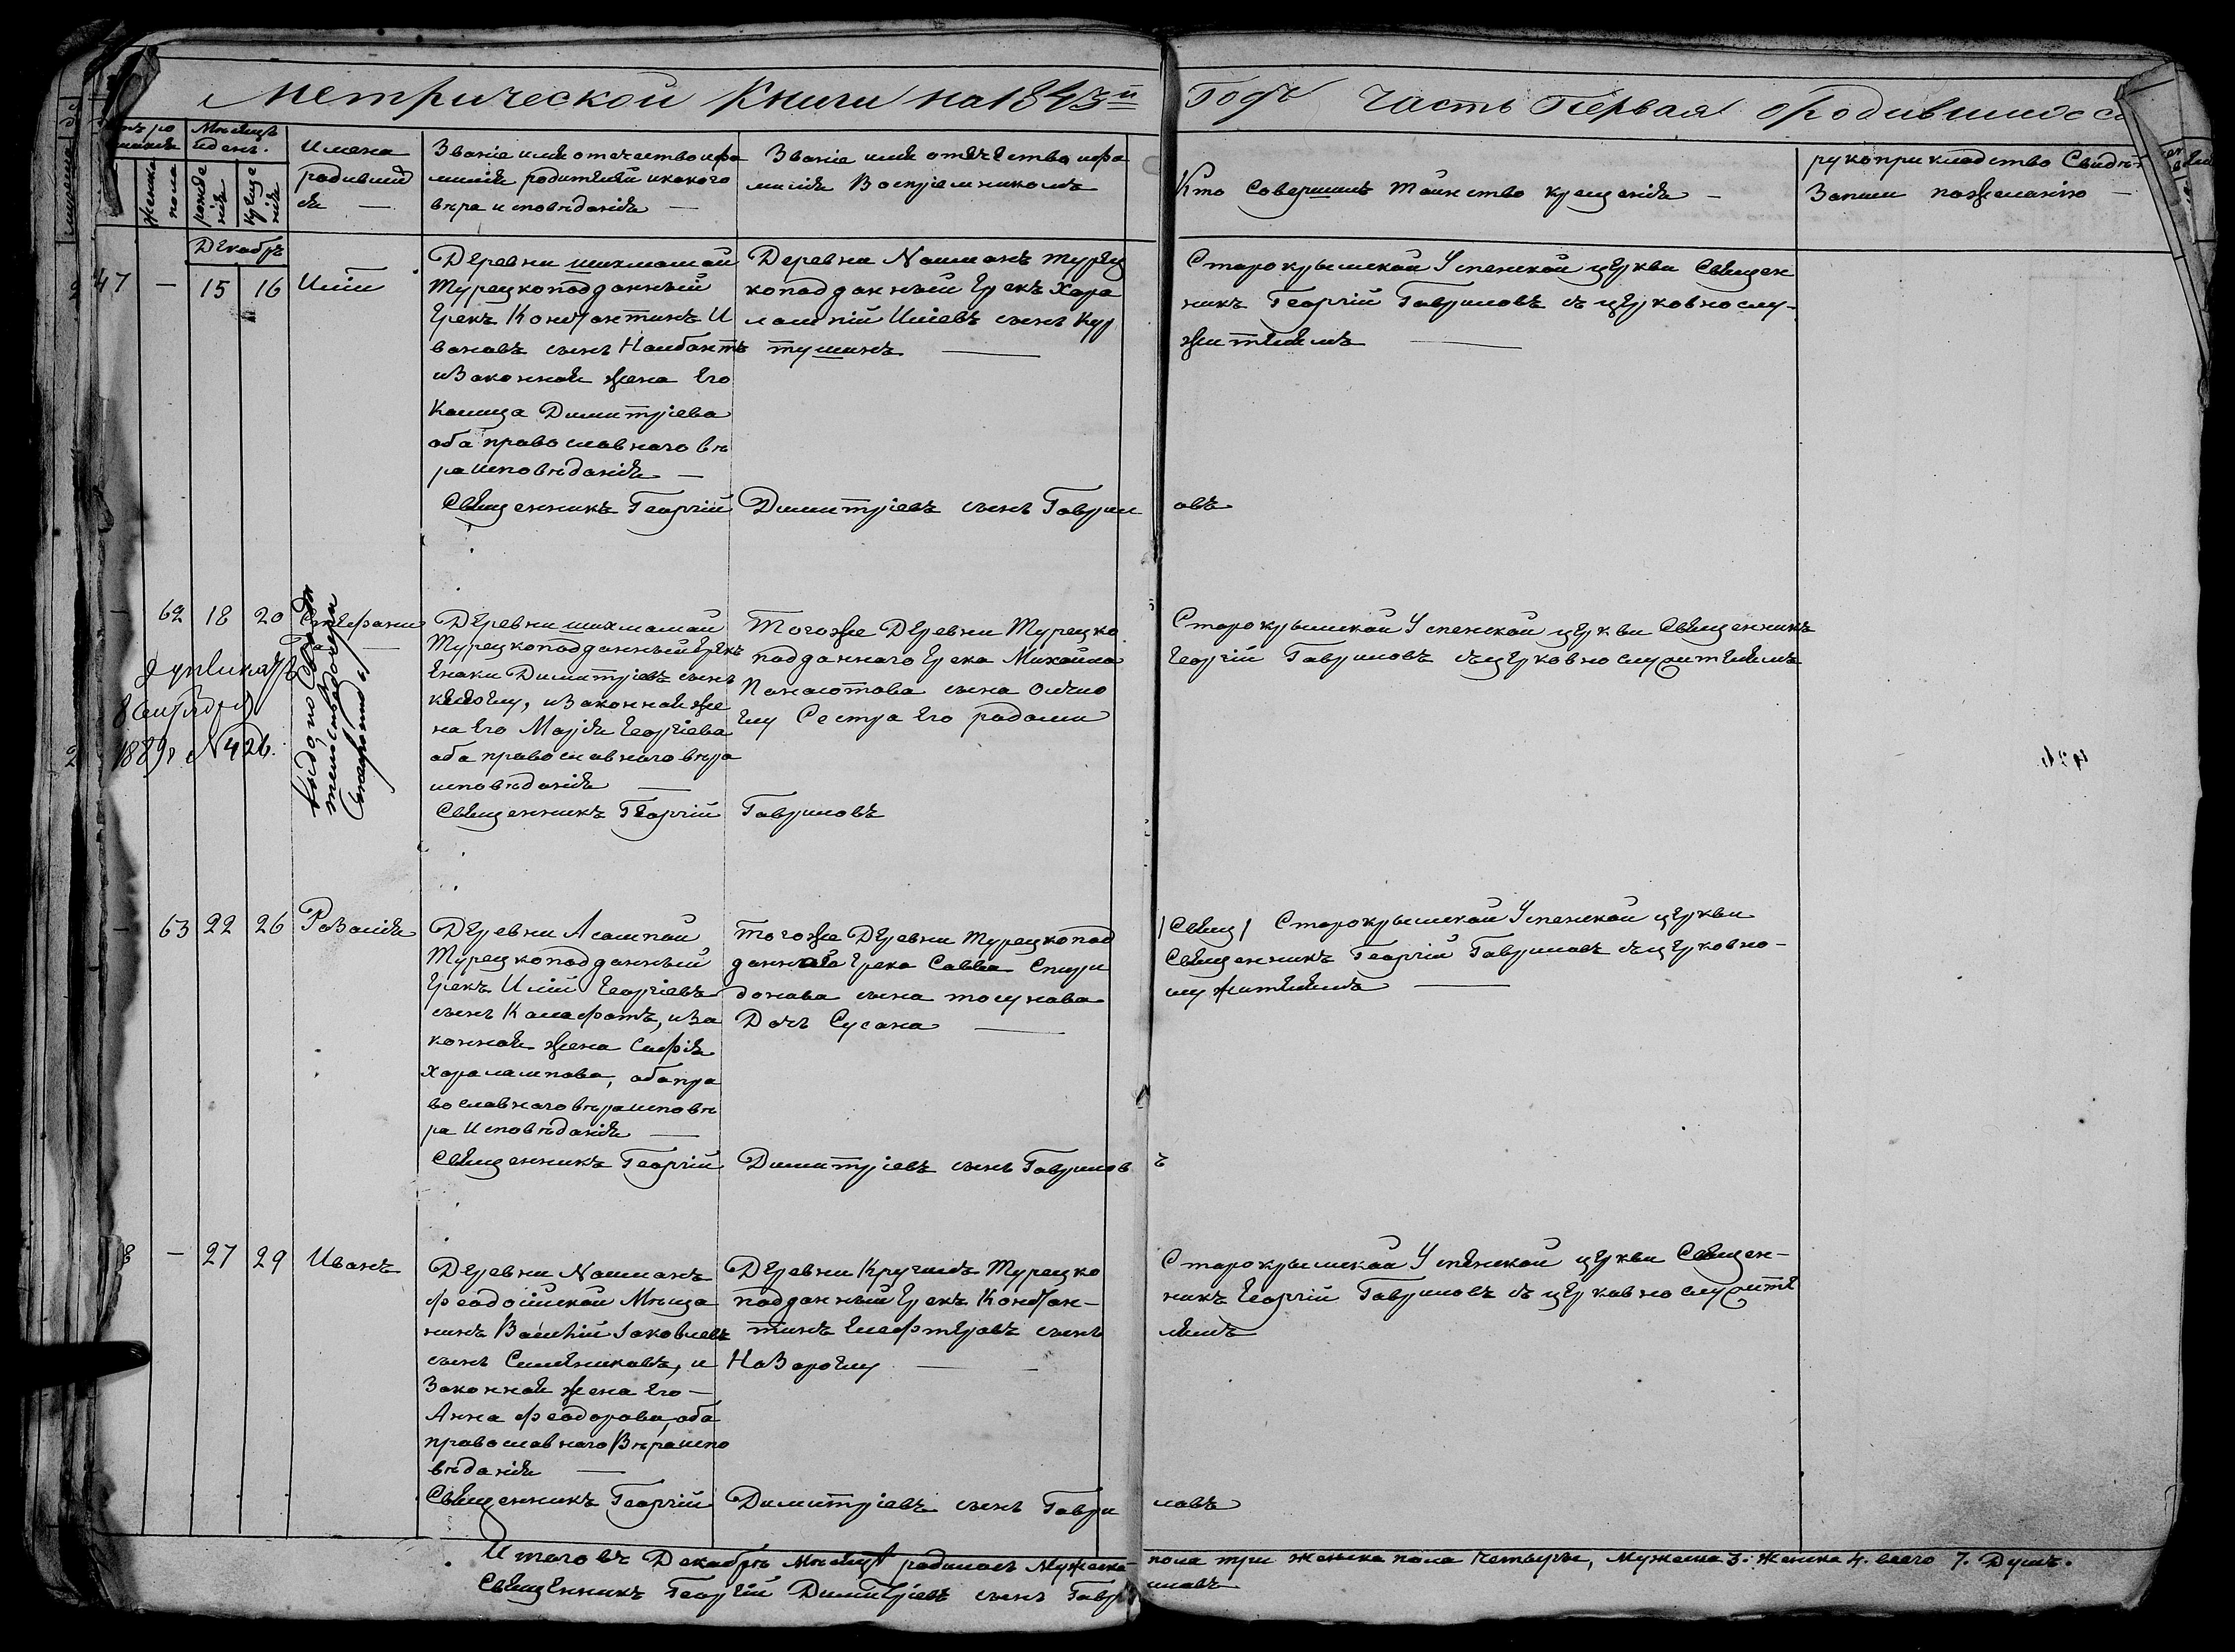 Метрической Книги на 1843й Годъ Часть Первая о Родившихся
Мѣсяцъ
и день.
Имена
родивших
ся —
Званіе имя отечество и фа
милія родителей и какого
вѣра исповѣданія —
Званіе имя отечество и фа
милія Воспріемниковъ
Кто Совершилъ Таинство крещенія —
рукоприкладство Свидѣт
Записи по желанію —
женска
пола
рожде
нія
креще
нія
Декабръ
47 — 15 16 Илія
Деревни шихмамай
Турецкоподданный
Грекъ Константинъ И
вановъ сынъ Налбантъ
и Законная жена Его
Калица Димитріева
оба православнаго вѣ
ра исповѣданія —
Деревни Найманъ турец
коподданный Грекъ Хара
лампій Иліевъ сынъ Кур
тушинъ —
Старокрымской Успенской церкви Священ
никъ Георгій Гавриловъ съ церковнослу-
жителемъ —
Священникъ Георгій Димитріевъ сынъ Гаврил овъ
— 62 18 20 Стефани
Деревни шихмамай
Турецкоподданный Грекъ
Енаки Димитріевъ сынъ
и Законная же
на Его Марія Георгіева
оба православнаго вѣра
исповѣданія —
Тогоже Деревни Турецко
подданнаго Грека Михайла
Панаіотова сына
Сестра Его
Старокрымской Успенской церкви Священникъ
Георгій Гавриловъ съ церковнослужителемъ
Священникъ Георгій Гавриловъ
дупликатъ
1889 г. № 426.
Выдано
— 63 22 26 Розалія
Деревни Асампай
Турецкоподданный
Грекъ Илій Георгіевъ
сынъ Калафатъ, и За
конная жена Софія
Харалампова, оба пра
вославнаго вѣра исповѣ
ра Исповѣданія —
тогоже Деревни турецкопод
даннаго Грека Савва Спири
донова сына
Дочъ Сусана —
/Свящ/ Старокрымской Успенской церкви
Священникъ Георгій Гавриловъ съ церковно-
служителемъ —
Священникъ Георгій Димитріевъ сынъ Гаврилов ъ
— 27 29 Иванъ
Деревни Найманъ
Феодосійской Мѣща
нинъ Василій Іаковлевъ
сынъ Семениковъ, и
Законная жена Его —
Анна Феодорова, оба
православнаго Вѣра испо
вѣданія —
Деревни Кручилъ Турецко
подданный Грекъ Констан-
тинъ Елефтеровъ сынъ
Старокрымской Успенской церкви Священ-
никъ Георгій Гавриловъ съ церковнослужите
лемъ
Священникъ Георгій Димитріевъ сынъ Гаври ловъ
Итого въ Декабрѣ Мѣсяцѣ родилось Мужеска пола три женска пола Четыре, Мужеска 3. Женска 4. всего 7. Душъ.
Священникъ Георгій Димитріевъ сынъ Гавр иловъ